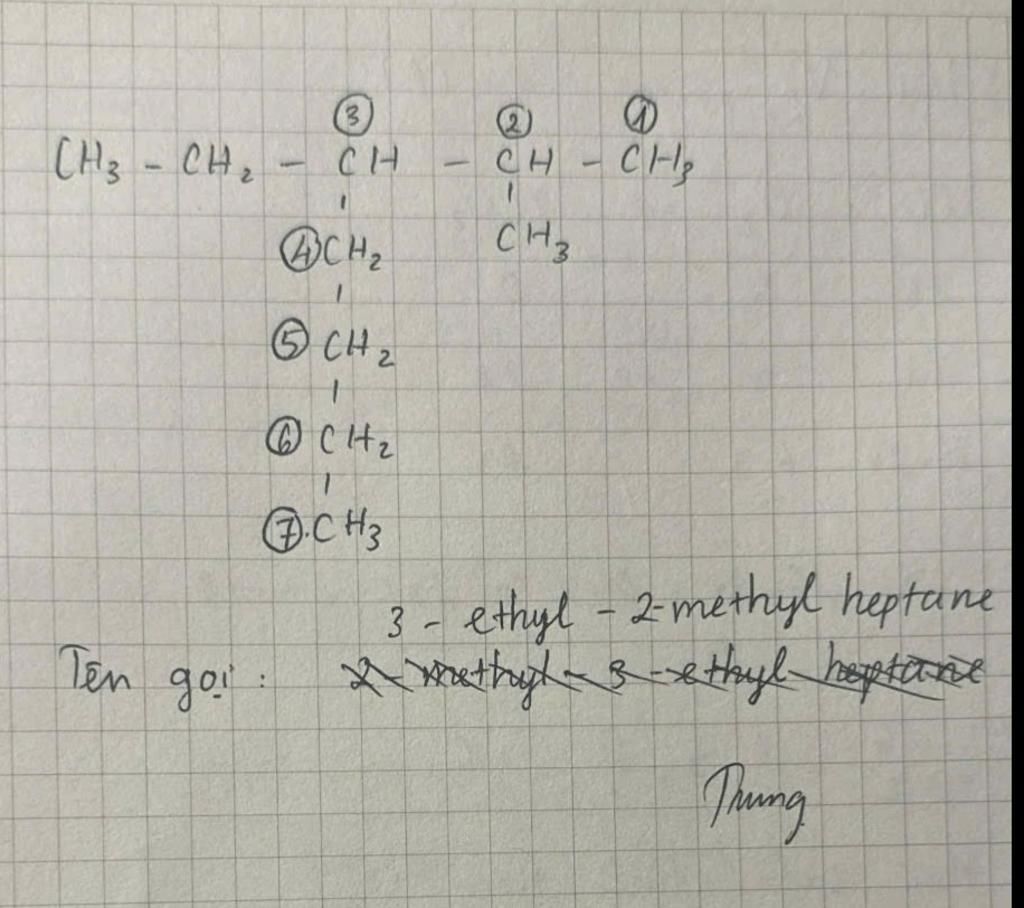 ③ ② ①
CH₃ - CH₂ - CH - CH - CH₃
④CH₂ CH₃
⑤ CH₂
⑥ CH₂
⑦.CH₃
3 - ethyl - 2-methyl heptane
Tên gọi : 2-methyl-3-ethyl heptane